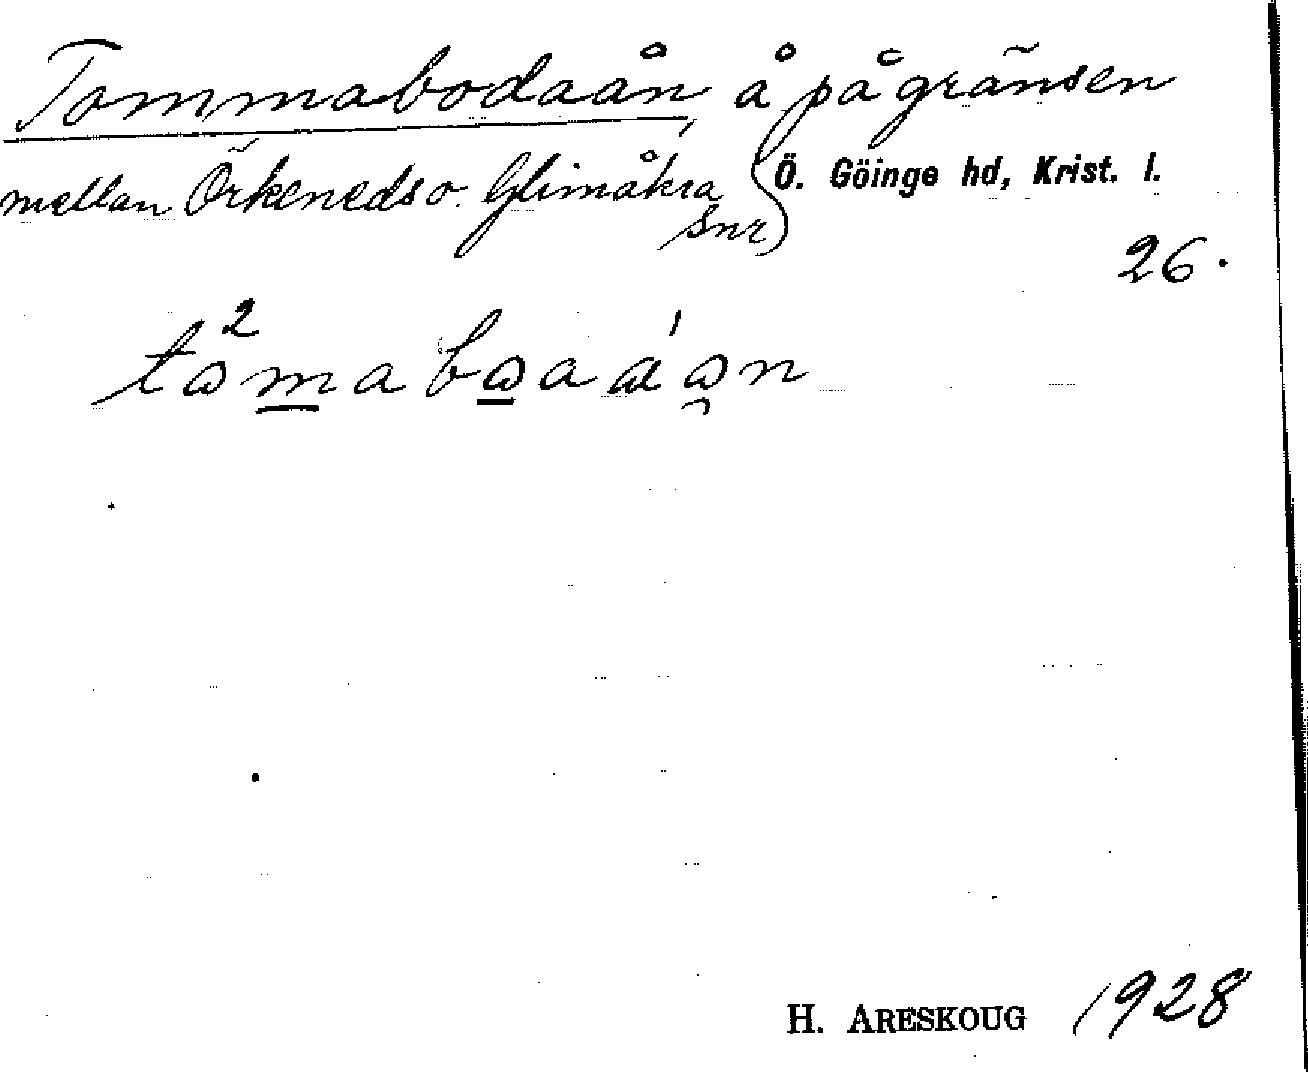 Tommabodaån, å på gränsen
mellan Örkeneds o. Glimåkra Ö. Göinge hd, Krist. l.
snr)
26.
H. ARESKOUG 1928